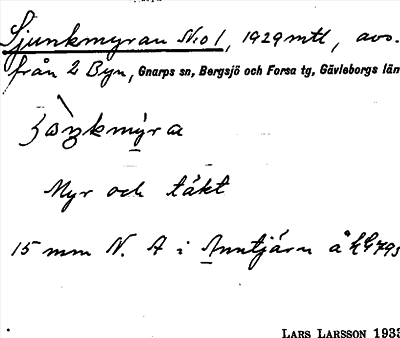 Sjunkmyran N:o 1, 1929 mtl, avs.
från 2 Byn, Gnarps sn, Bergsjö och Forsa tg, Gävleborgs län
Myr och täkt
15 mm N. A i Anntjärn å
LARS LARSSON 1933